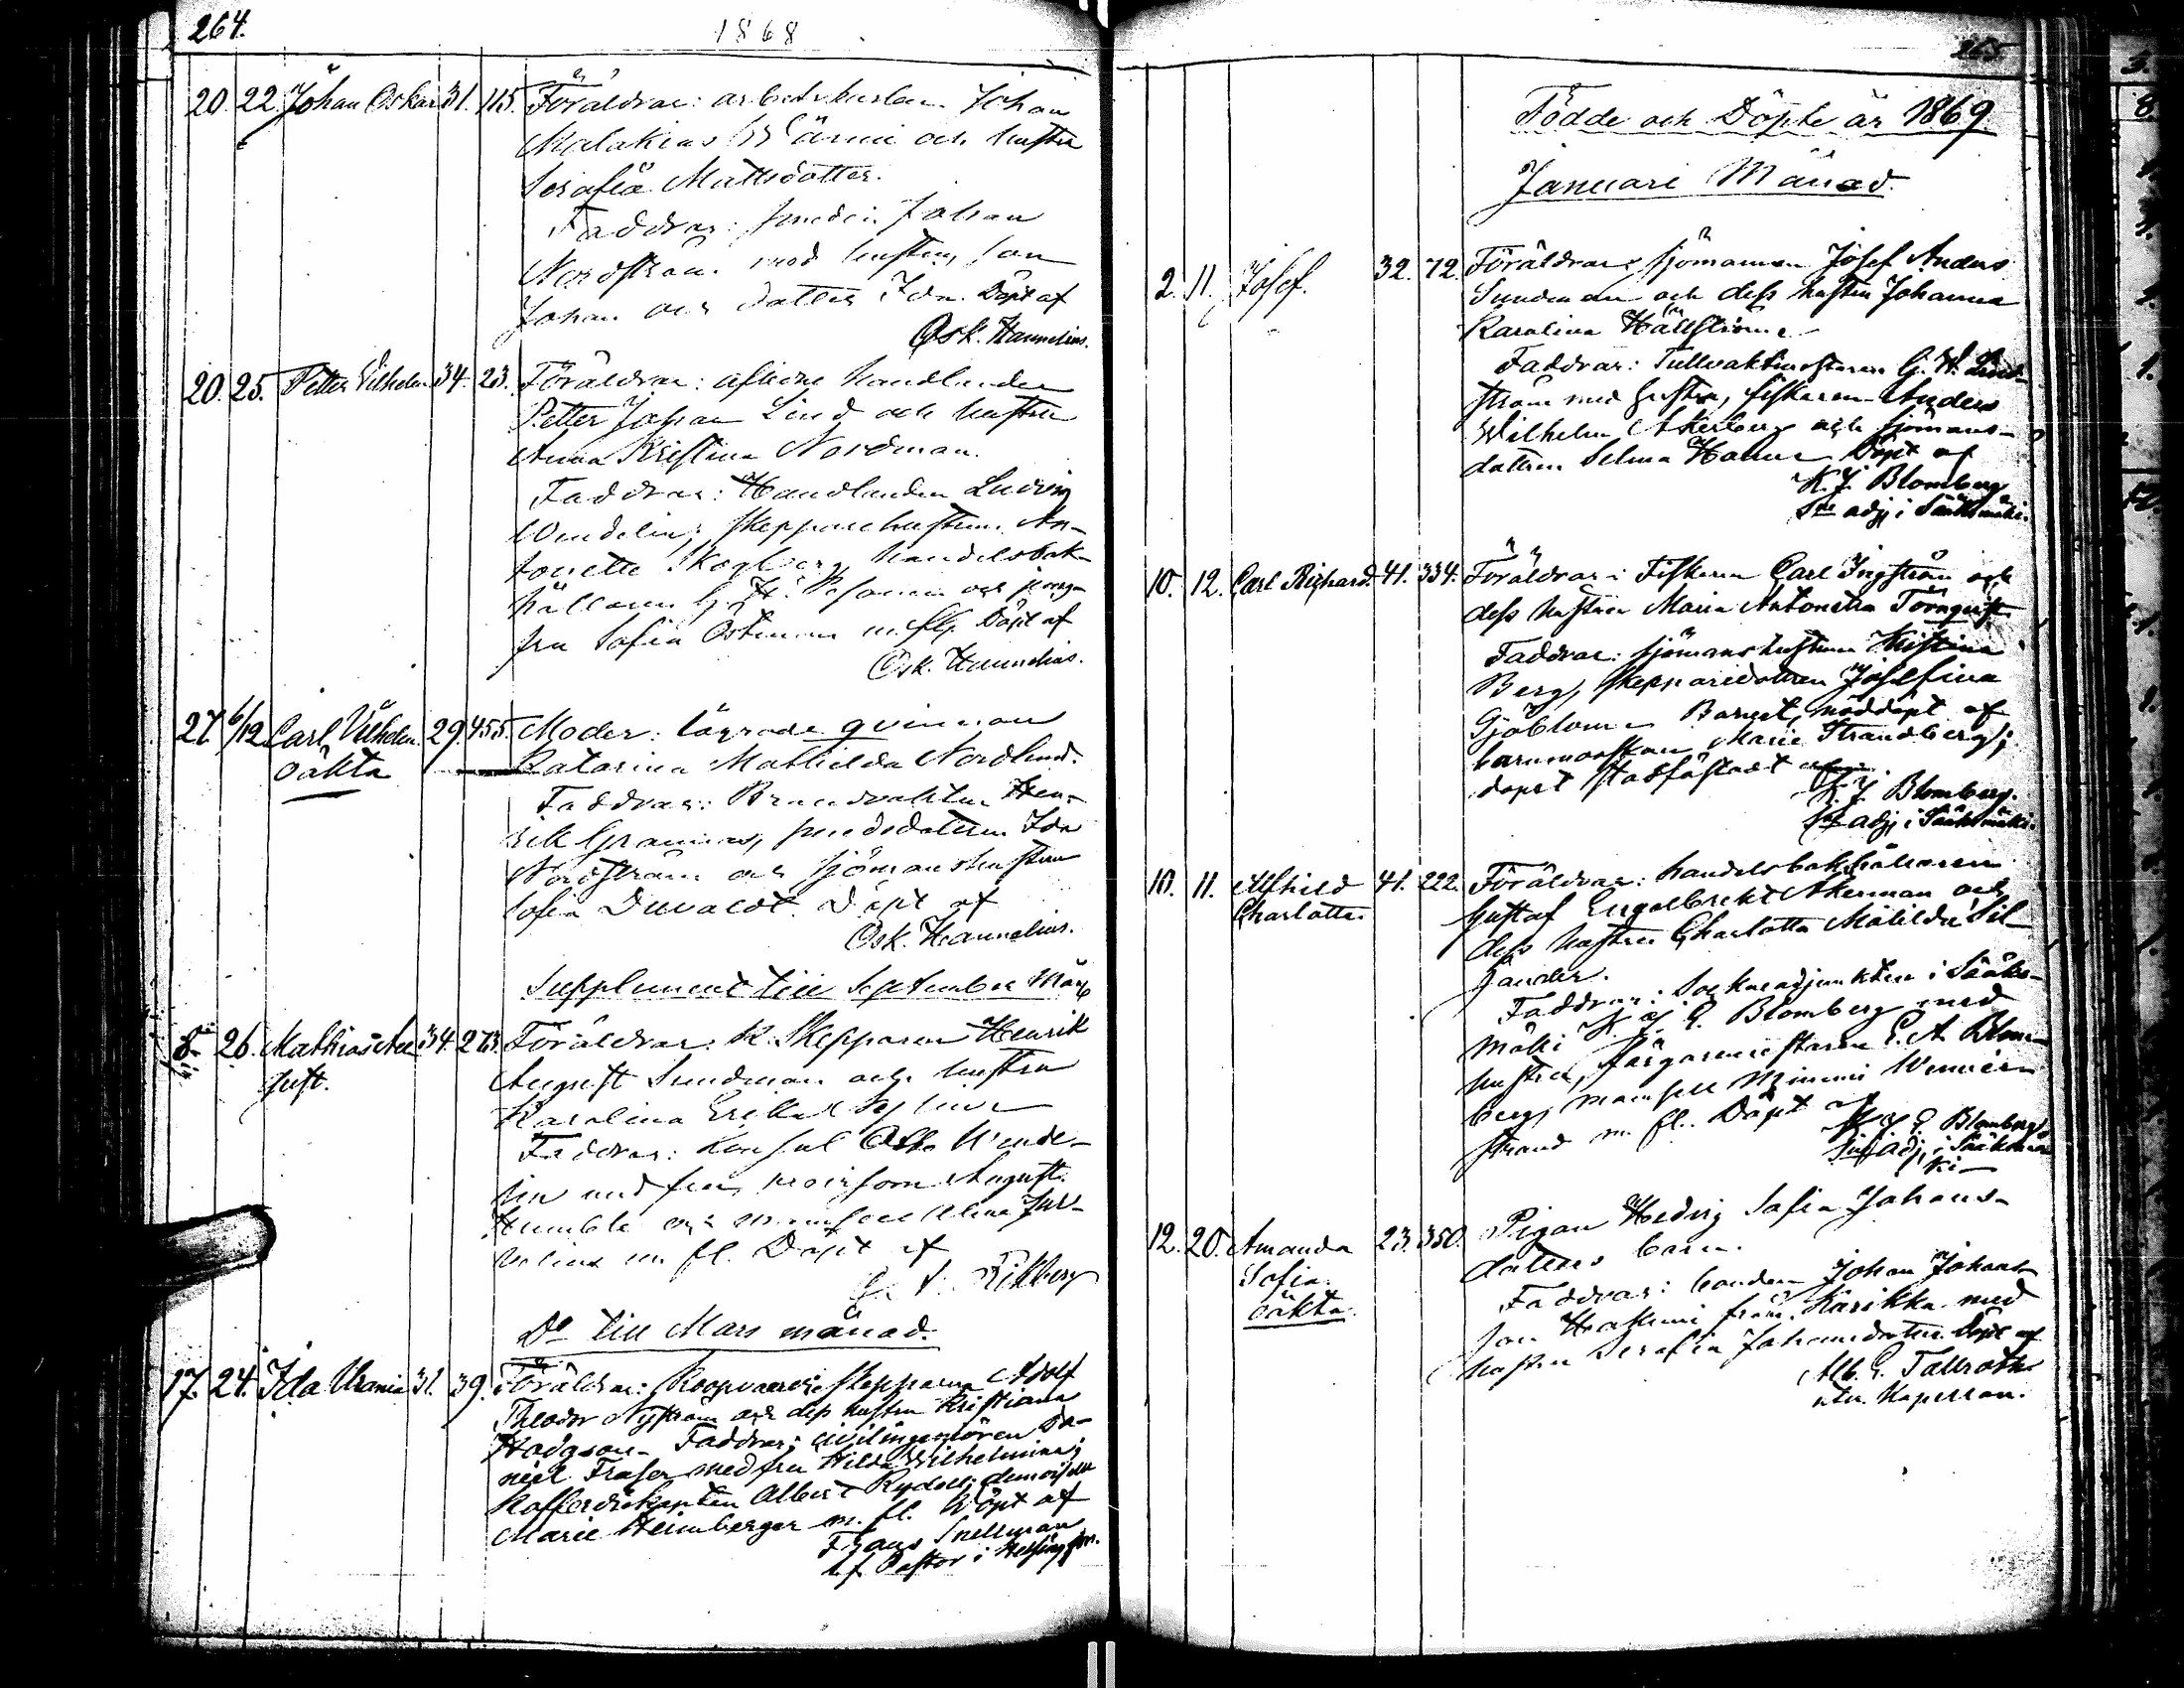 264.
1868
20. 22. Johan Oskar 31. 115. Föräldrar: arbetskarlen Johan
Malakias och hustru
Serafia Mattsdotter.
Faddrar: smeden Johan
Nordström med hustru, son
Johan och dotter Ida. Döpt af
Osk. Hannelius.
20. 25. Petter Vilhelm 34. 23. Föräldrar: aflidne handlanden
Petter Johan Lind och hustru
Anna Kristina Nordman.
Faddrar: Handlanden Ludvig
Wendelin, skepparehustrun An-
tonette Skogberg, handelsbok-
hållaren och jung-
fru Sofia Österman m. fl. Döpt af
Osk. Hannelius.
27. 6/12 Carl Vilhelm 29. 455. Moder: lägrade qvinnan
oäkta Katarina Mathilda Nordlund.
Faddrar: Brandvakten Hen-
rik Granroos, smedsdottren Ida
Nordström och sjömanshustrun
Sofia Duvaldt. Döpt af
Osk. Hannelius.
Supplement till September Mån.
8. 26. Mathias 34. 273. Föräldrar: K. Skepparen Henrik
Just. August Sundman och hustru
Karolina Erika
Faddrar: Konsul Otto Wende-
lin med fru, August
Humble och mamsell Alma
m. fl. Döpt af
Rikberg
Do till Mars månad.
17. 24. Ida Urania 31. 39. Föräldrar: Koopvaerdie skepparen Adolf
Theodor Nyström och dess hustru Kristiana
Hodgson. Faddrar: Civilingeniören Da-
niel Fraser med fru Hilda Wilhelmina;
Kofferdikapten Albert Rydell; demoiselle
Marie Heimberger m. fl. Döpt af
Frans Snellman
t.f. Pastor i Helsingfors.
265.
Födde och Döpte år 1869.
Januari Månad.
2. 11. Josef. 32. 72. Föräldrar: sjömannen Josef Anders
Sundman och dess hustru Johanna
Karolina Hällström.
Faddrar: Tullvaktmästaren G. W. Lind-
ström med hustru, fiskaren Anders
Wilhelm Åkerberg och sjömans-
dottren Selma Döpt af
K. J. Blomberg
Sne adj. i Sääksmäki.
10. 12. Carl Richard. 41. 334. Föräldrar: Fiskaren Carl Ingström och
dess hustru Maria Antonetta Törnqvist
Faddrar: sjömanshustrun Kristina
Berg, skepparedottren Josefina
Sjöblom. Barnet nöddöpt af
barnmorskan Marie Strandberg;
dopet stadfästadt af
K. J. Blomberg.
Sne adj. i Sääksmäki.
10. 11. Alfhild 41. 222. Föräldrar: handelsbokhållaren
Charlotta Gustaf Engelbrekt Åkerman och
dess hustru Charlotta Matilda Sil-
jander.
Faddrar: Sockneadjunkten i Sääks-
mäki K. J. E. Blomberg med
hustru, färgaremästaren E. A. Blom-
berg, mamsell Mimmi Wenner-
strand m. fl. Döpt af
K. J. E. Blomberg
Sne adj. i Sääksmä-
ki
12. 20. Amanda 23. 350. Pigan Hedvig Sofia Johans-
Sofia dotters barn.
oäkta. Faddrar: bonden Johan Johans-
son från Karikka med
hustru Serafia Johansdotter. Döpt af
Alb. E. Tallroth
utn. Kapellan.